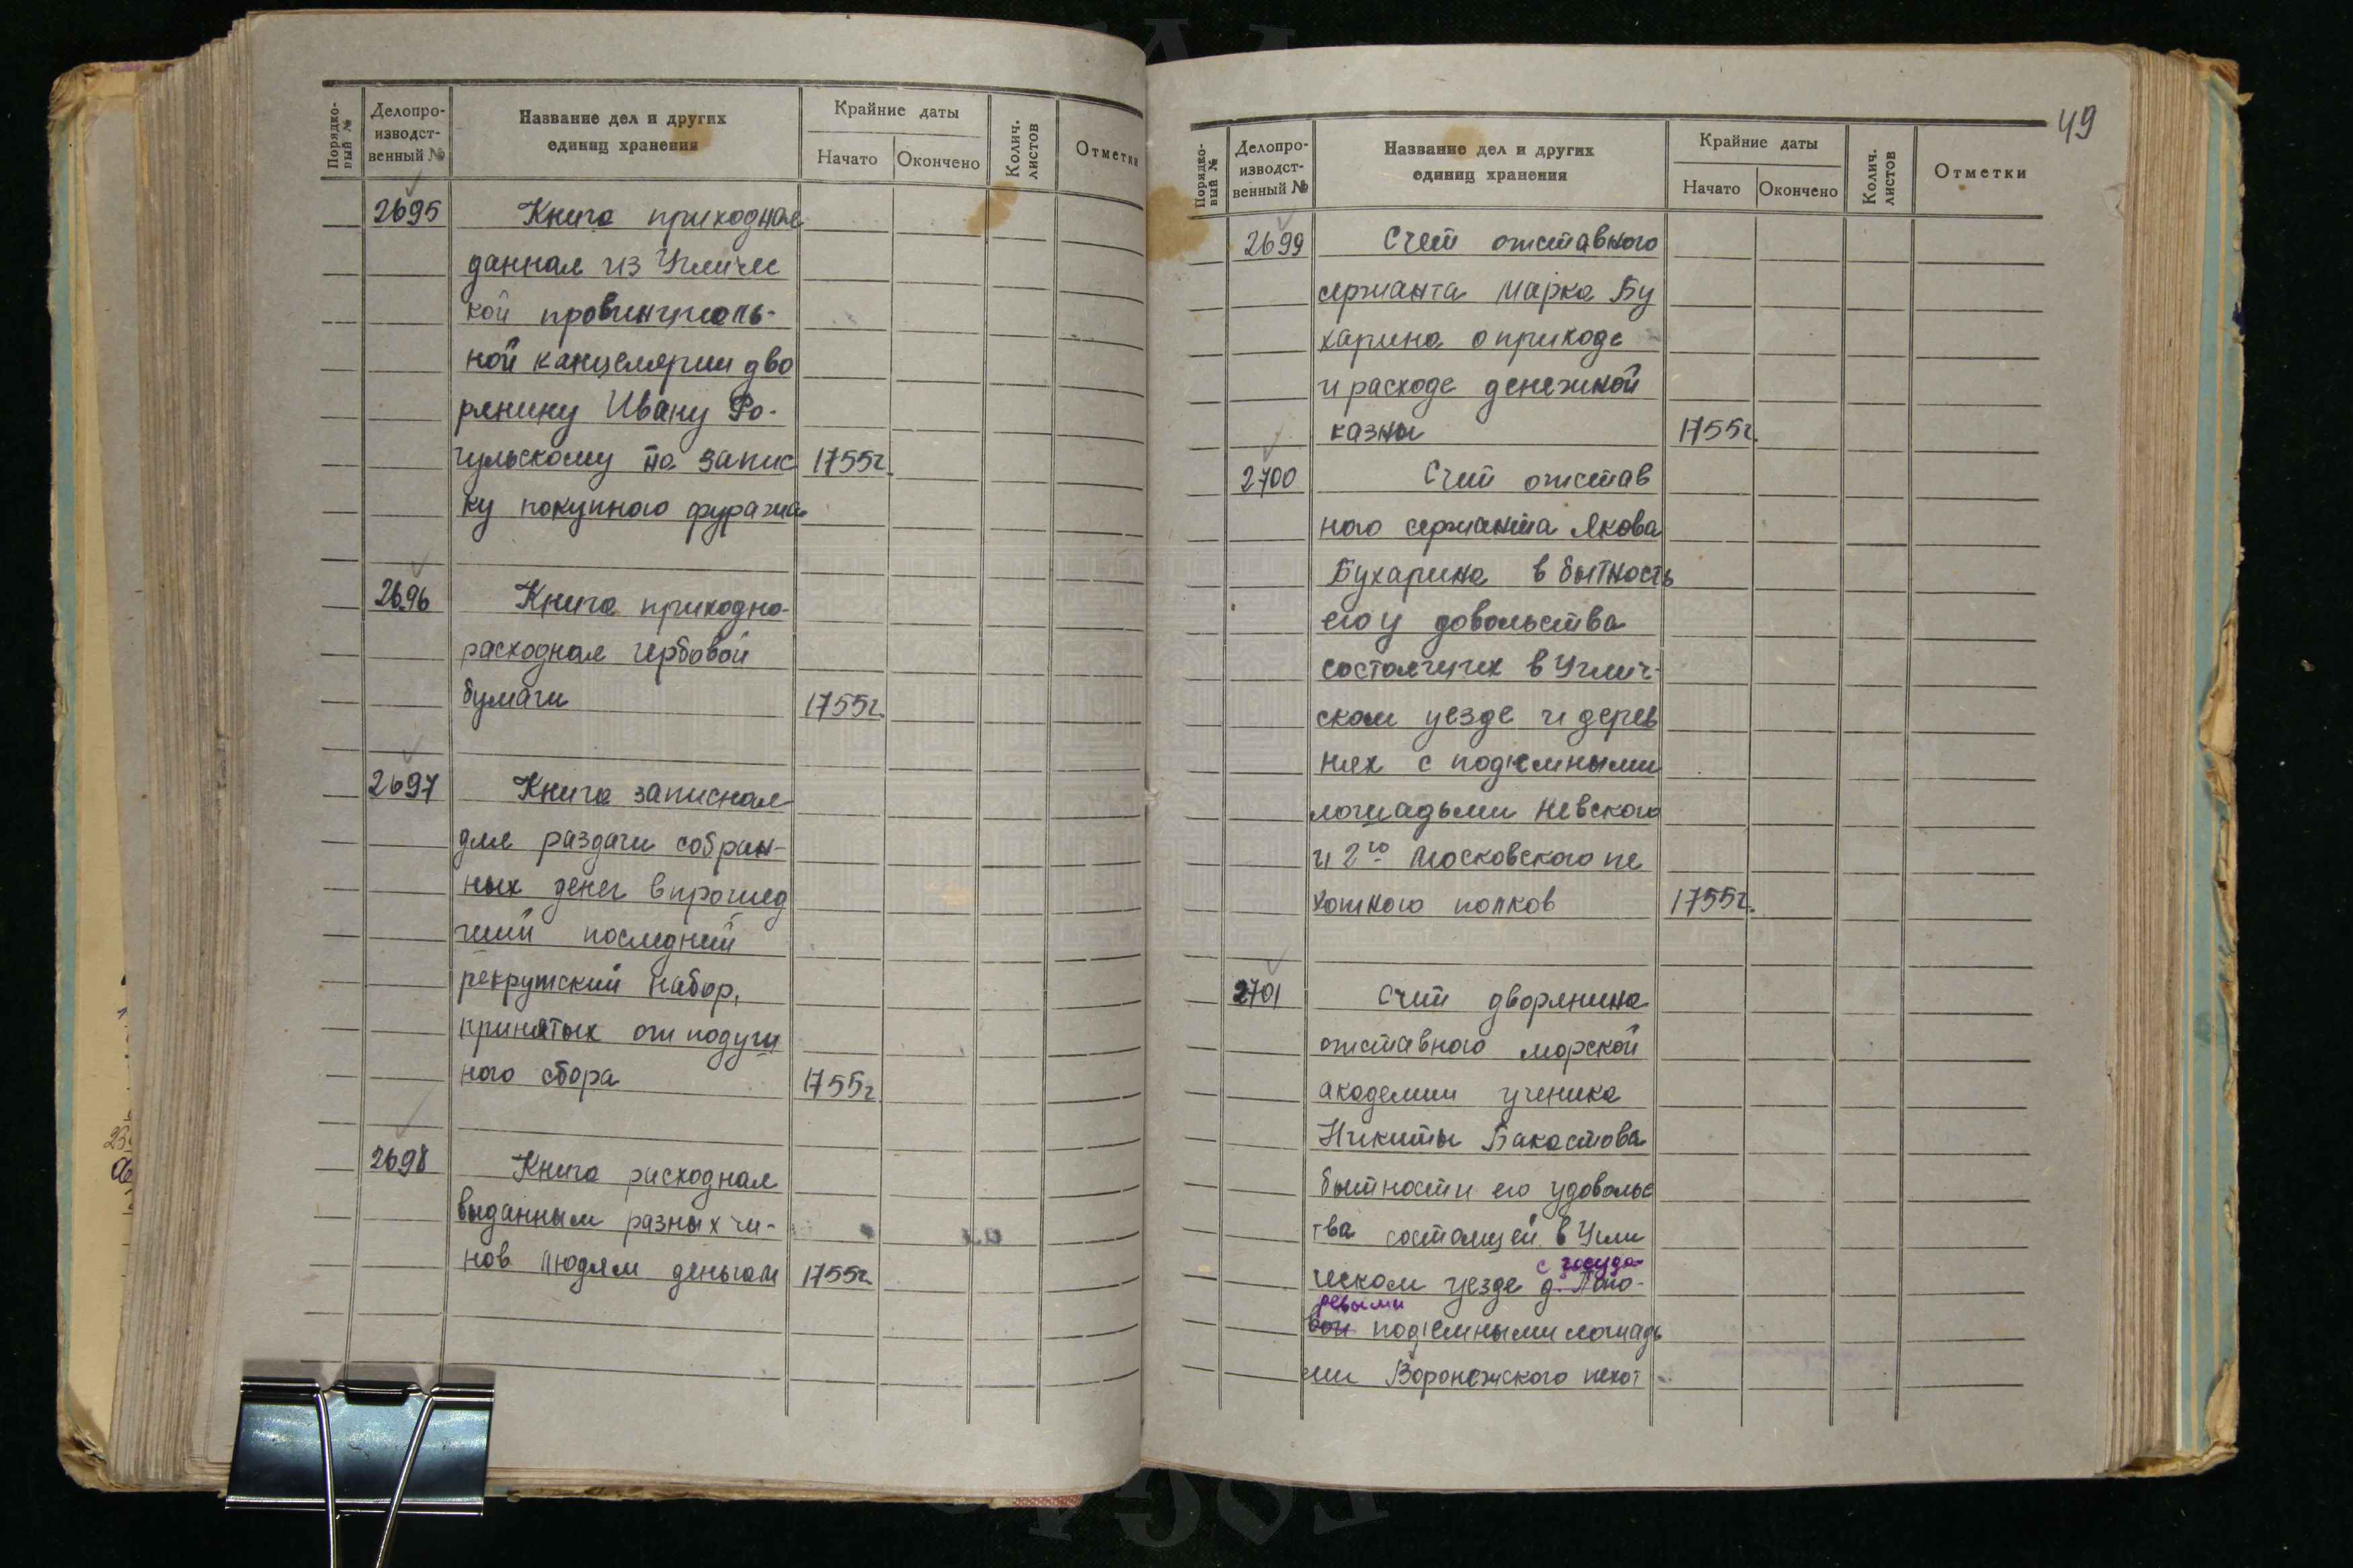 Порядко-
вый №
Делопро-
изводст-
венный №
Название дел и других
единиц хранения
Крайние даты
Начато
Окончено
Колич.
листов
Отметки
2695 Книга приходная
данная из Угличес
кой провинциаль-
ной канцелярии дво
рянину Ивану Ро-
гульскому на запис 1755г.
ку покупного фуража
2696 Книга приходно-
расходная гербовой
бумаги 1755г.
2697 Книга записная
для раздачи собран-
ных денег в прошед
ший последний
рекрутский набор,
принятых от подуш
ного сбора 1755г.
2698 Книга расходная
выданным разных чи-
нов людям деньгам 1755г.
49
Порядко-
вый №
Делопро-
изводст-
венный №
Название дел и других
единиц хранения
Крайние даты
Начато
Окончено
Колич.
листов
Отметки
2699 Счет отставного
сержанта Марка Бу
харина о приходе
и расходе денежной
казны 1755г.
2700 Счет отстав
ного сержанта Якова
Бухарина в бытность
его у довольства
состоящих в Углич-
ском уезде и дерев
нях с подъемными
лошадьми Невского
и 2го Московского пе
хотного полков 1755г.
2701 Счет дворянина
отставного морской
академии ученика
Никиты Бакастова
бытности его удовольс
тва состоящей в Угли
с госуда-
ческом уезде д. Попо-
ревыми
вой подъемными лошадь
ми Воронежского пехот